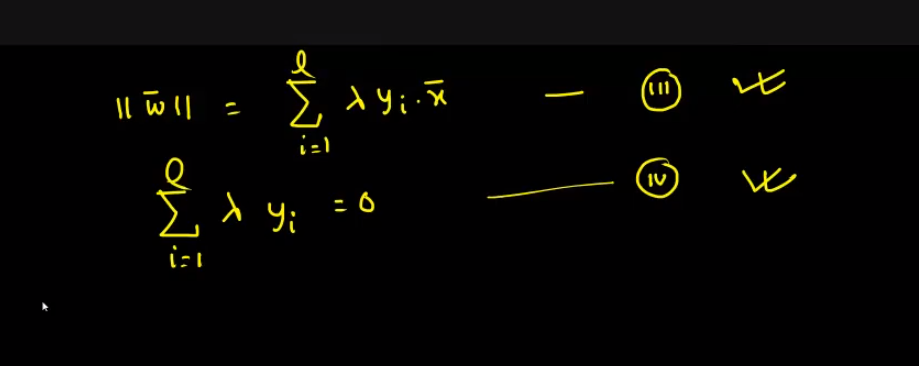 ||w̅|| = Σ_{i=1}^{l} λ y_i . x̅ — (III)
Σ_{i=1}^{l} λ y_i = 0 — (IV)